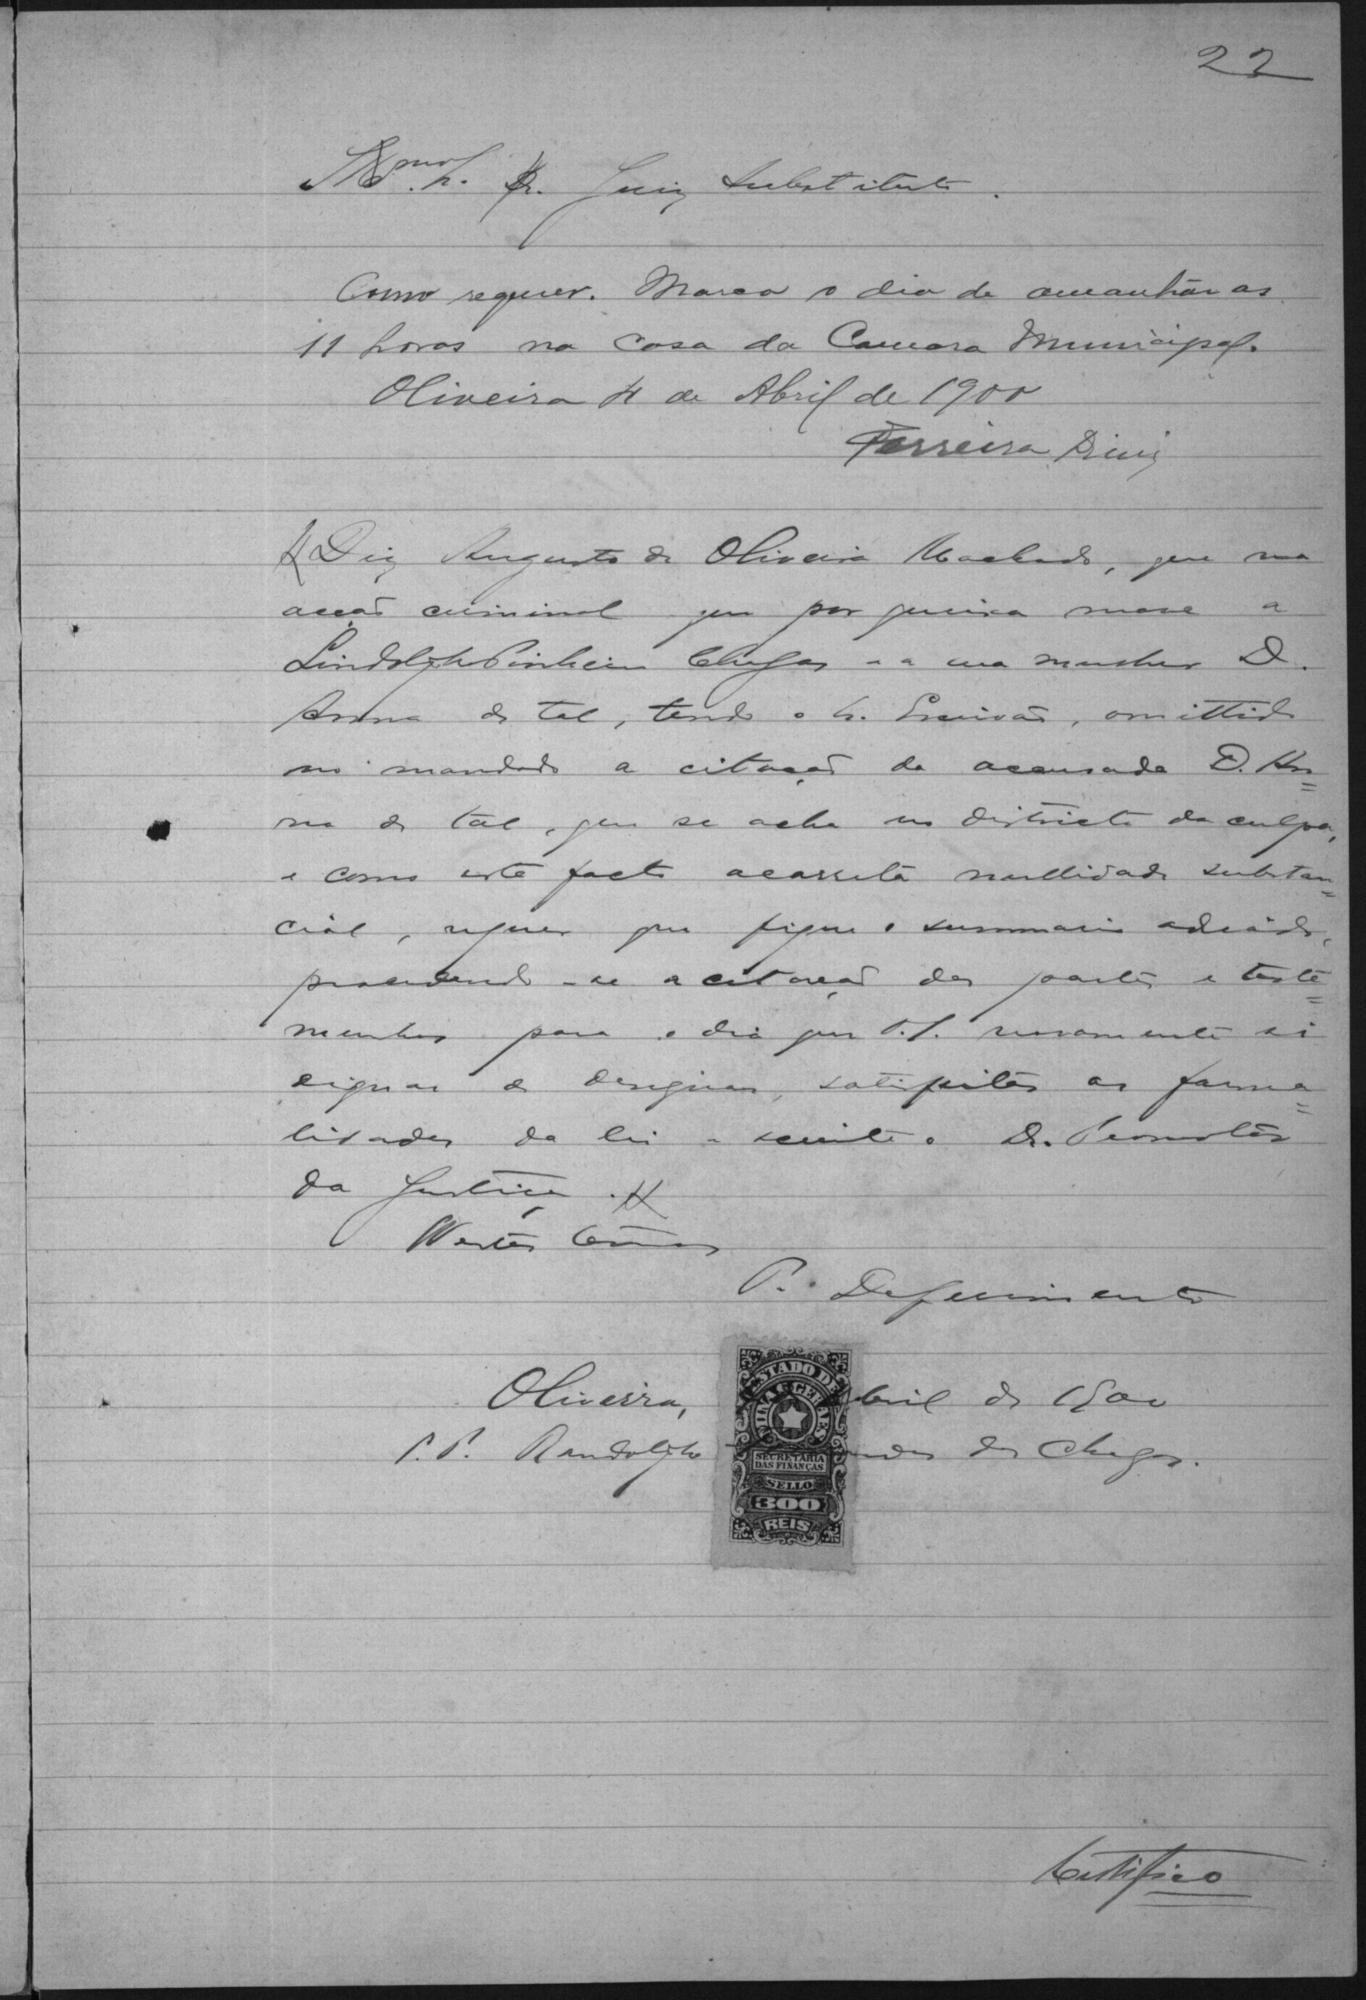 22
Illmo. Sr. Dr. Juiz Substituto.
Como requer. Marco o dia de amanhãn as
11 horas na casa da Camara Municipal.
Oliveira 4 de Abril de 1900
Ferreira Diniz
Diz Augusto de Oliveira Machado, que na
acção criminal que por queixa move a
Lindolpho Pinheiro Chagas e a sua mulher D.
Anna de tal, tendo o Sr. Escrivão, omittido
no mandado a citação da accusada D. An=
na de tal, que se acha no districto da culpa,
e como este facto acarreta nullidade substan=
cial, requer que fique o summario adiado,
procedendo-se a citação das partes e teste=
munhas para o dia que V.S. novamente se
dignar de designar, satisfeitas as forma=
lidades da lei e sciente o Dr. Promotor
da Justiça.
Nestes termos
P. Deferimento
Oliveira, Abril de 1900
P.P. Randolpho de Chagas.
ESTADO DE
MINAS GERAES
SECRETARIA
DAS FINANÇAS
SELLO
300
REIS
Certifico